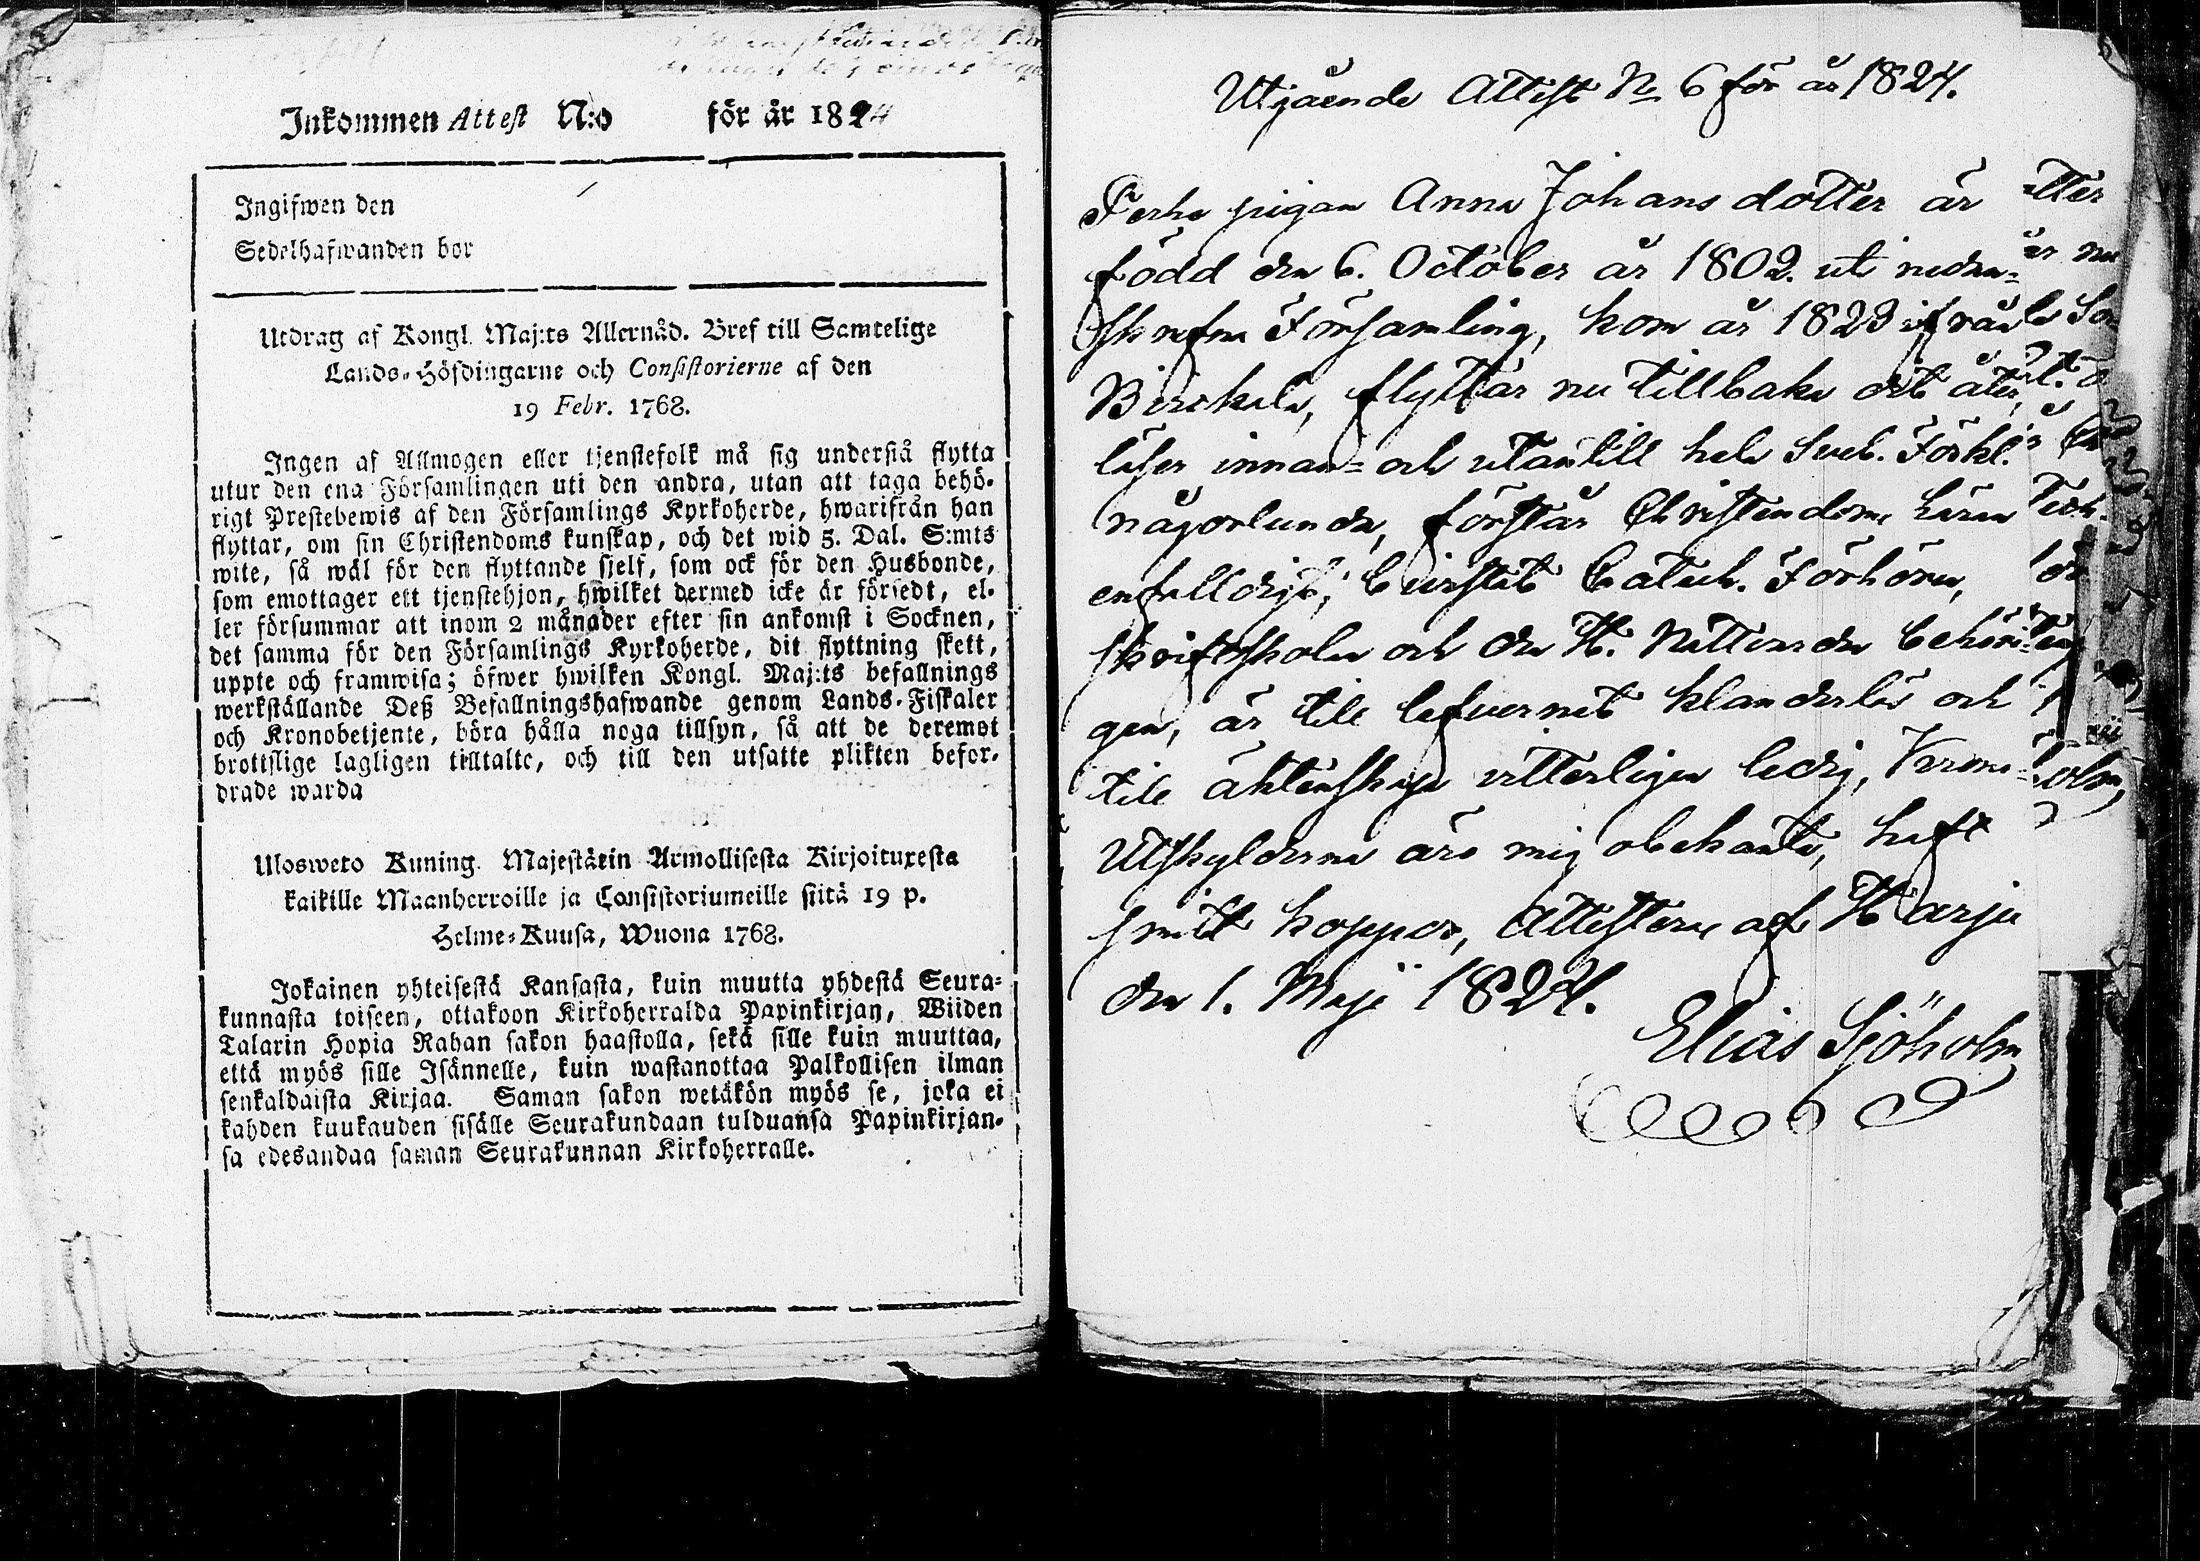 Inkommen Attest N:o för år 1824
Ingifwen den
Sedelhafwanden bor
Utdrag af Kongl. Maj:ts Allernåd. Bref till Samtelige
Lands-Höfdingarne och Consistorierne af den
19 Febr. 1768.
Ingen af Allmogen eller tjenstefolk må sig understå flytta
utur den ena Församlingen uti den andra, utan att taga behö-
rigt Prestebewis af den Församlings Kyrkoherde, hwarifrån han
flyttar, om sin Christendoms kunskap, och det wid 5. Dal. S:mts
wite, så wäl för den flyttande sjelf, som ock för den Husbonde,
som emottager ett tjenstehjon, hwilket dermed icke är försedt, el-
ler försummar att inom 2 månader efter sin ankomst i Socknen,
det samma för den Församlings Kyrkoherde, dit flyttning skett,
uppte och framwisa; öfwer hwilken Kongl. Maj:ts befallnings
werkställande Deß Befallningshafwande genom Lands-Fiskaler
och Kronobetjente, böra hålla noga tillsyn, så att de deremot
brottslige lagligen tilltalte, och till den utsatte plikten befor-
drade warda
Ulosweto Kuning. Majestätin Armollisesta Kirjoituxesta
kaikille Maanherroille ja Consistoriumeille siitä 19 p.
Helme-Kuusa, Wuona 1768.
Jokainen yhteisestä Kansasta, kuin muutta yhdestä Seura-
kunnasta toiseen, ottakoon Kirkoherralda Papinkirjan, Wiiden
Talarin Hopia Rahan sakon haastolla, sekä sille kuin muuttaa,
että myös sille Isännelle, kuin wastanottaa Palkollisen ilman
senkaldaista Kirjaa. Saman sakon wetäkön myös se, joka ei
kahden kuukauden sisälle Seurakundaan tulduansa Papinkirjan-
sa edesandaa saman Seurakunnan Kirkoherralle.
Utgående Attest No 6 för år 1824.
pigan Anna Johans dotter är
född den 6. October år 1802. uti nedan-
skrefne Församling, kom år 1823 ifrån
Birckala, flyttar nu tillbaka dit åter,
läser innan- och utantill hela Sveb. Förkl.
någorlunda, förstår Christendoms Läran
enfalldigt, bevistat Catech. Förhören,
skriftskolen och den H. Nattvarden behöri-
gen, är till lefvernet klanderlös och
till äktenskap vitterligen ledig, Krono-
Utskylderna äro mig obekanta, haft
smitt koppor, Attesterar af Harju
den 1. Maji 1824.
Elias Sjöholm